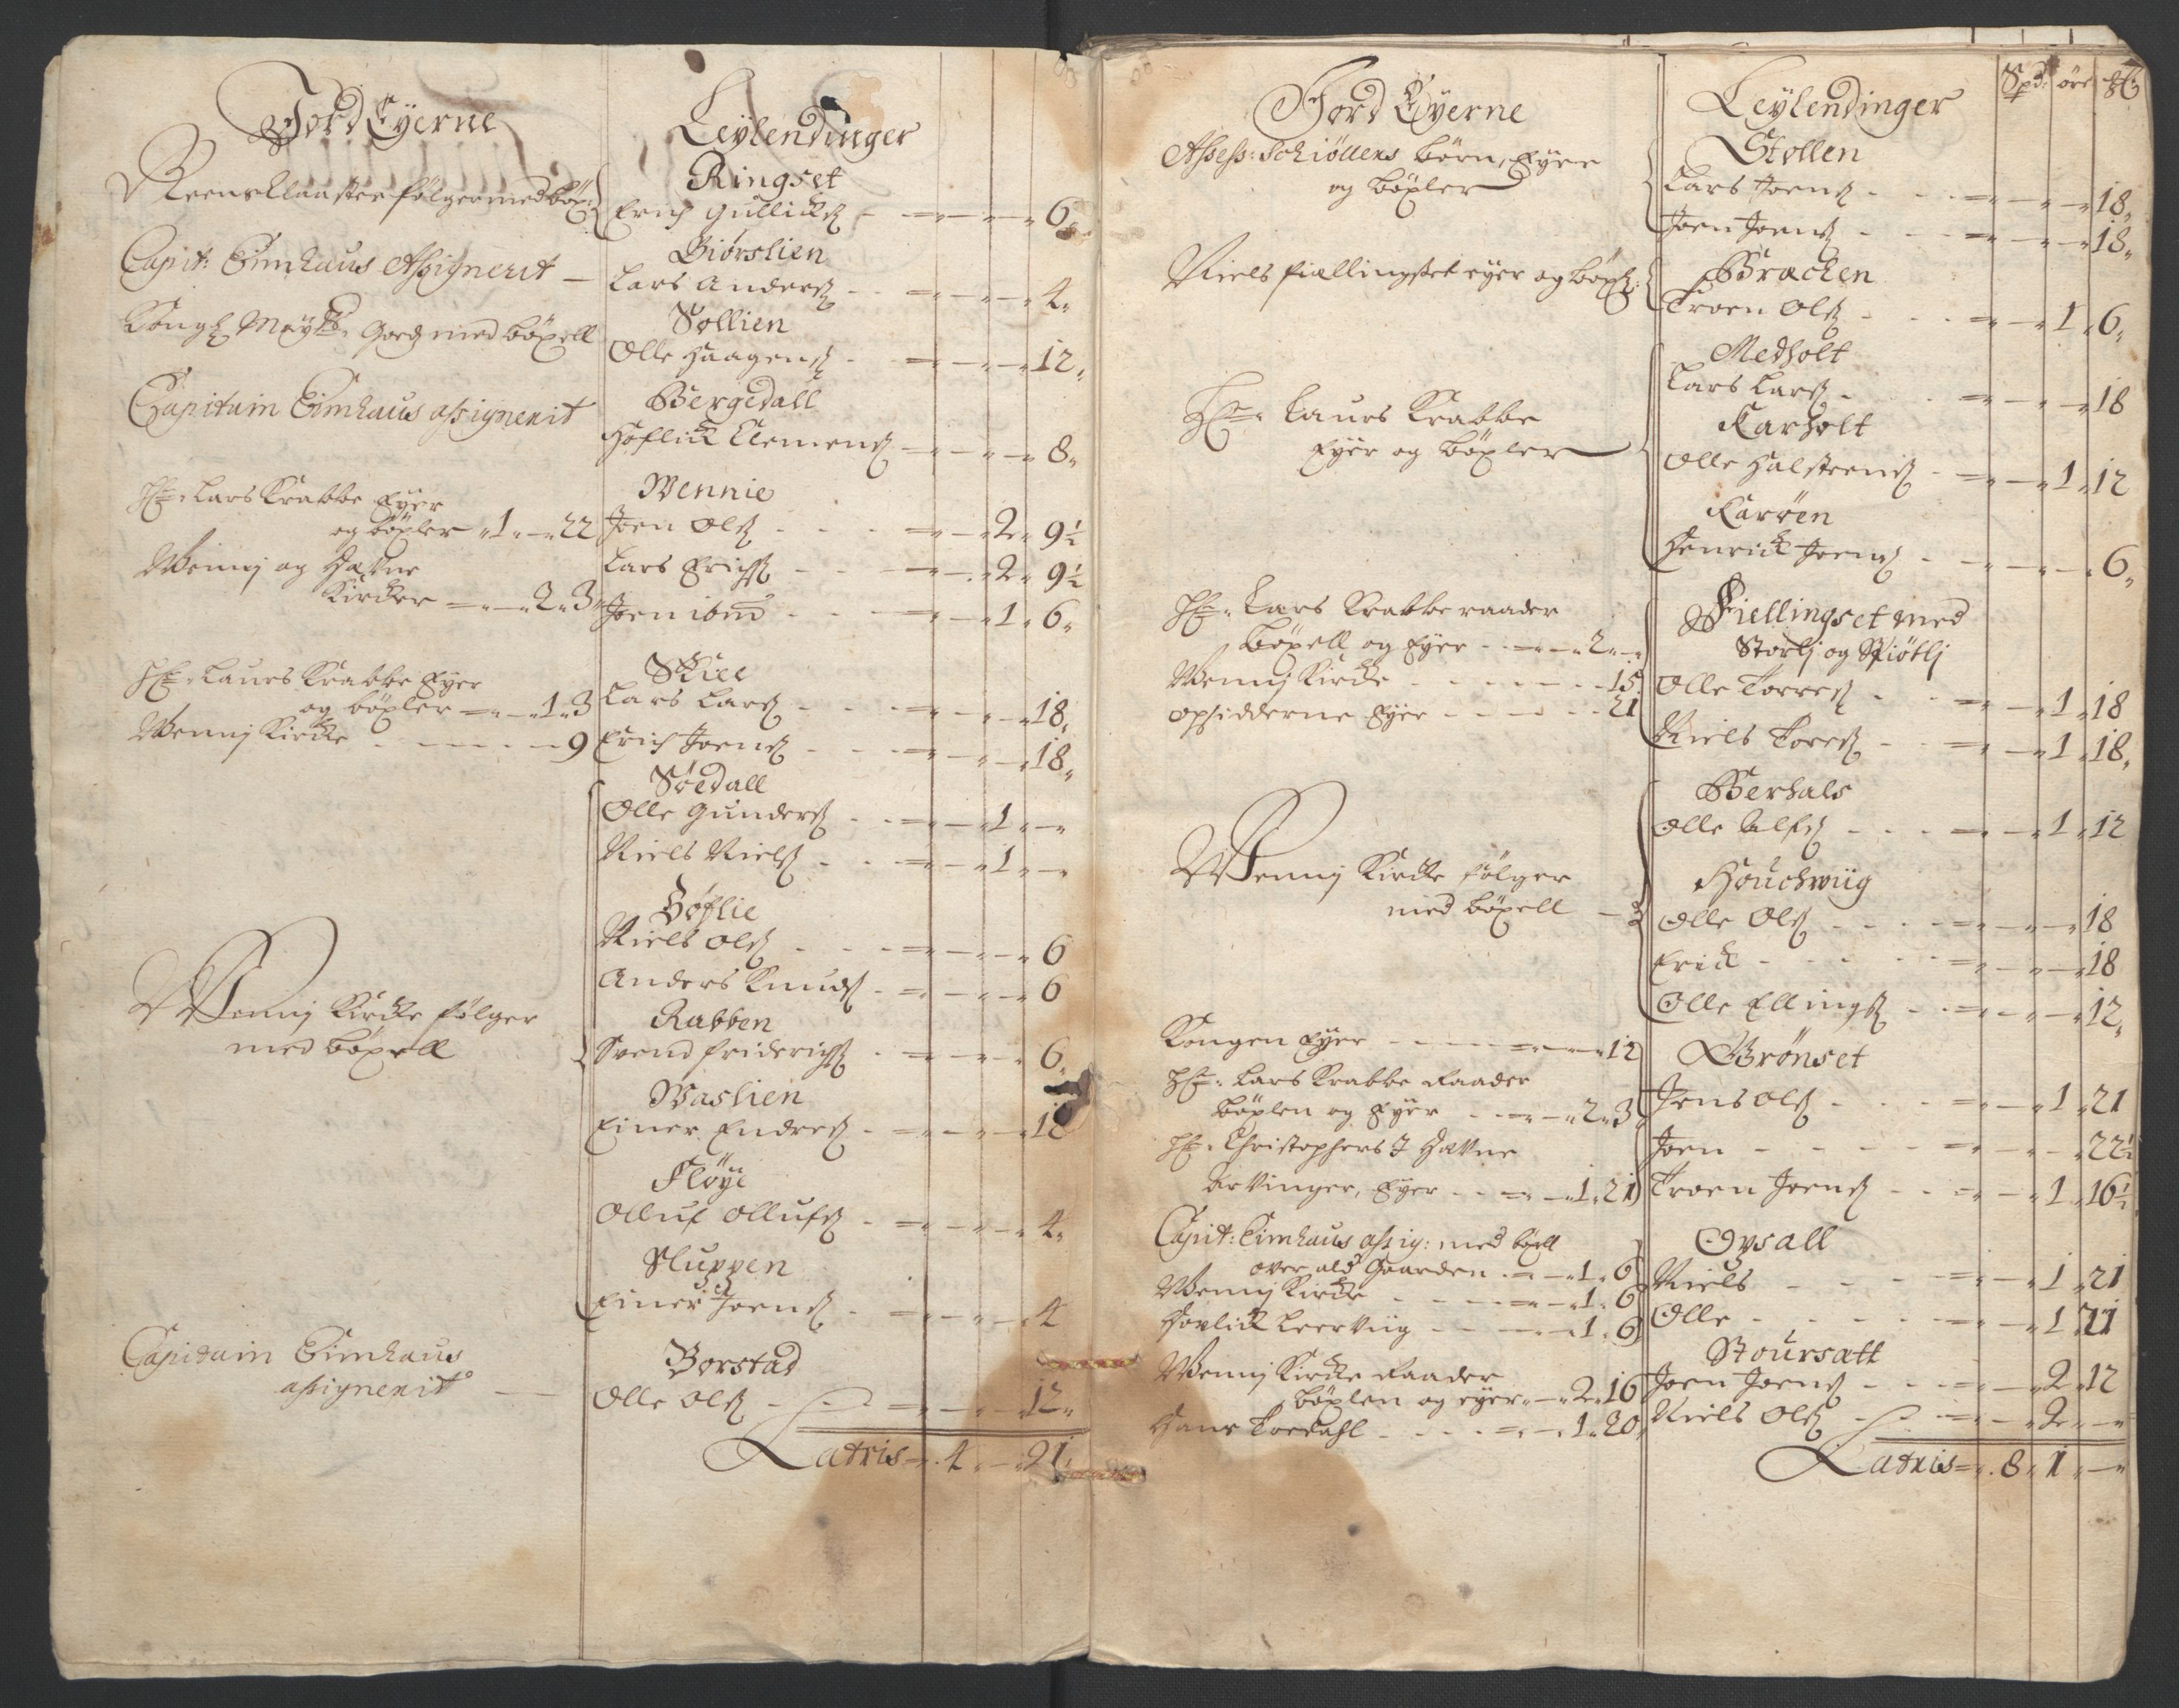 Jord Eyerne
Reens Klaaster følger med böx:
Capit: Eimhaus Assignerit —
Kongl Mayts: Godz med böxell
Capitain Eimhaus assignerit
Hr: Lars Krabbe Eyer
og böxler „1„—22
Wennj og Hafne
Kircker — — 2„3„
Hr: Laurs Krabbe Eyer
og böxler — — 1„3
Wennj Kircke - — — — 9
Wennj Kircke følger
med böxell
Capitain Eimhaus
assignerit —
Leylendinger
Ringset
Erich Gullicks — — „ — „ — „ 6„
Giørslien
Lars Anders - — „ — „ — „ 4„
Sollien
Olle Haagens - — „ — „ — „ 12„
Bergedall
Hoflick Clemens — „ — „ — „ 8„
Wennie
Joen Ols - - - — „ — 2„ 9½
Lars Erichs - - — „ — 2„ 9½
Joen ibm - - - — „ — „1„ 6„
Skiel
Lars Lars - - - — „ — „ — „18„
Erich Joens - - - — „ — „ — „18„
Søedall
Olle Gunders - - — „ — „1„ —
Niels Niels - - — „ — „1„ —
Høflie
Niels Ols - - - — „ — „ — „ 6
Anders Knuds - — „ — „ — „ 6
Rabben
Svend Friderichs - — „ — „ — „ 6„
Waslien
Einer Endres - — „ — „ — „18
Fløye
Olluf Ollufs - — „ — „ — „ 4„
Sluppen
Einer Joens - — „ — „ — „ 4
Borstad
Olle Ols - - — „ — „ — „12„
Latris — „ 4 „ — „ 21„
Jord Eyerne
Assess: Schiöllers börn, Eyer
og böxler
Niels Fiællingset eyer og böxl:
Hr: Laurs Krabbe
Eyer og böxler
Hr: Lars Krabbe raader
böxell og Eyer - - — „ — „2„ —
Wennj Kircke - - — - — - — 15„
opsidderne Eyer - - — - — 21
Wennj Kircke følger
med böxell —
Kongen Eyer - — - — „ — 12
Hr: Lars Krabbe Raader
böxlen og Eyer - - — „ — „2„3
Hr: Christophers i Hafne
Arvinger, Eyer - - — „ — „1„21
Capit: Eimhaus assig: med böxll
over ald Gaarden - — „ — „1„ 6
Wennj Kircke - - - — „ — „1„ 6
Hovlick Leervig - - - — „1„ 6
Wennj Kircke Raader
böxlen og eyer „ — 2„16
Hans Toedahl - - - — „ — „1„20„
Leylendinger
Spd: öre
Stollen
Lars Joens - - - — „ — „ — „18„
Joen Joens - - - — „ — „ — „18„
Bracken
Troen Ols - - - — „ — „1„ 6„
Medholt
Lars Lars - - - — „ — „ — „18
Karholt
Olle Halsteens - — „ — „1„12
Karøen
Henrick Joens - — „ — „ — „ 6„
Fiellingset med
Storlj og Kiötlj
Olle Torres - - - — „ — „1„18
Niels Tores - - — „ — „1„18„
Berhals
Olle Alfs - - - — „ — „1„12
Houchwiig
Olle Ols - - - — „ — „ — „18
Erick - - - - — „ — „ — „18
Olle Ellings - - — „ — „ — „12„
Brønset
Jens Ols - - - — „ — „1„21
Joen - - - - — „ — „ — „22½
Troen Joens - - - — „ — „1„16½
Oysall
Niels - - - - — „ — „1„21
Olle - - - - — „ — „1„21
Stoursatt
Joen Joens - - — „ — „2„12
Niels Ols - - — „ — „2„ —
Latris — „ 8„ 1„ —